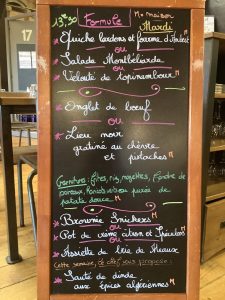 17
13€50 Formule M = maison
Mardi
* Quiche lardons et fourme d'Ambert M
ou
* Salade Montbéliarde
ou
* Velouté de topinambours M
* Onglet de boeuf
ou
* Lieu noir
gratiné au chèvre
et pistaches M
Garniture: frites, riz, mojettes, fondue de
poireaux, haricots verts ou purée de
patate douce M
* Brownie Snickers M
ou
* Pot de crème citron et Spéculoos M
ou
* Assiette de brie de Meaux
Cette semaine, le chef vous propose:
* Sauté de dinde
aux épices algériennes M